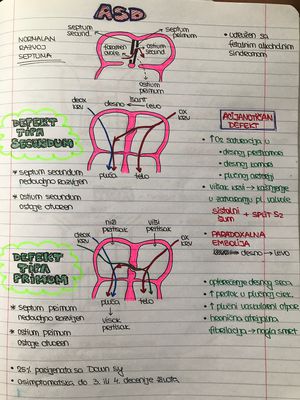 ASD
NORMALAN
RAZVOJ
SEPTUMA
septum
secund.
septum
primum
foramen
ovale
ostium
secund.
ostium
primum
• udružen sa
fetalnim alkoholnim
sindromom
DEFEKT
TIPA
SECUNDUM
* septum secundum
nedovoljno razvijen
* ostium secundum
ostaje otvoren
deox
krv
shunt
desno ← levo
ox
krv
pluća
telo
ACIJANOTIČAN
DEFEKT
• ↑O2 saturacija u
• desnoj pretkomori
• desnoj komori
• plućnoj arteriji
• višak krvi → kašnjenje
u zatvaranju pl. valvule
sistolni
šum
+ split S2
• PARADOKSALNA
EMBOLIJA
desno → levo
DEFEKT
TIPA
PRIMUM
* septum primum
nedovoljno razvijen
* ostium primum
ostaje otvoren
niži
pritisak
viši
pritisak
deox
krv
ox
krv
pluća
telo
↓
visok
pritisak
• opterećenje desnog srca
• ↑ protok u plućnoj cirk.
• ↑ plućni vaskularni otpor
• hronična atrijalna
fibrilacija → nagla smrt
• 25% pacijenata sa Down sy
• asimptomatska do 3. ili 4. decenije života